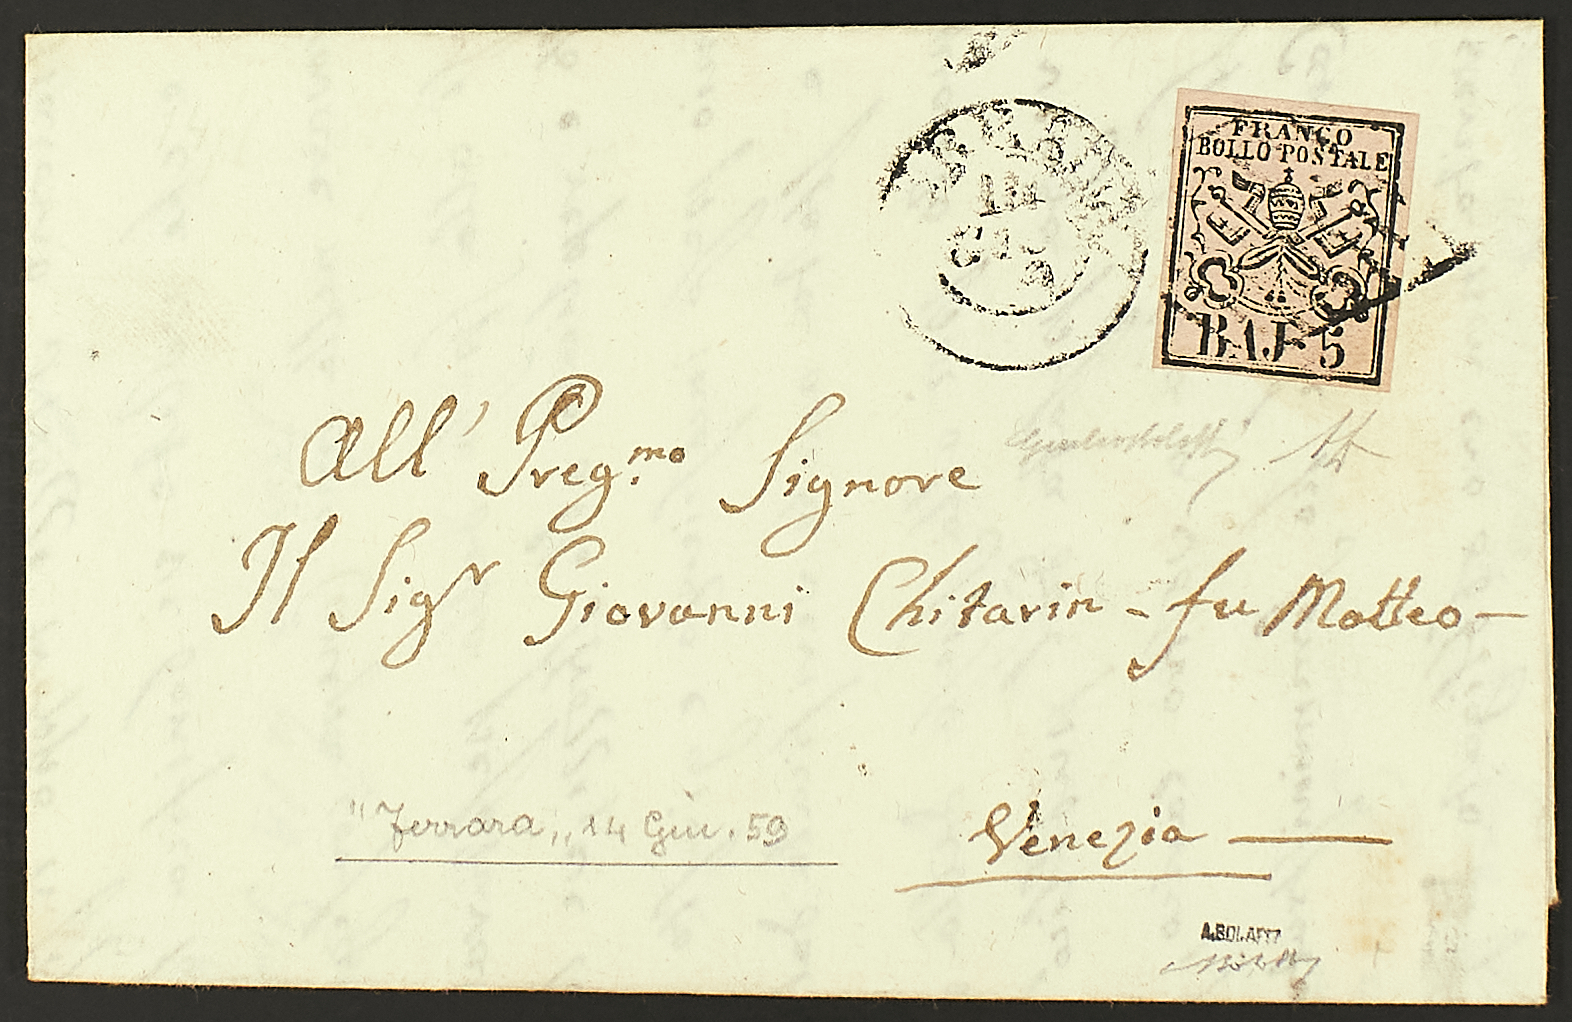 FRANCO
BOLLO POSTALE
BAJ. 5
14
GIU
All' Preg.mo Signore
Il Sigr Giovanni Chitarin - fu Matteo -
"Ferrara,, 14 Giu. 59
Venezia
A.BOLAFFI